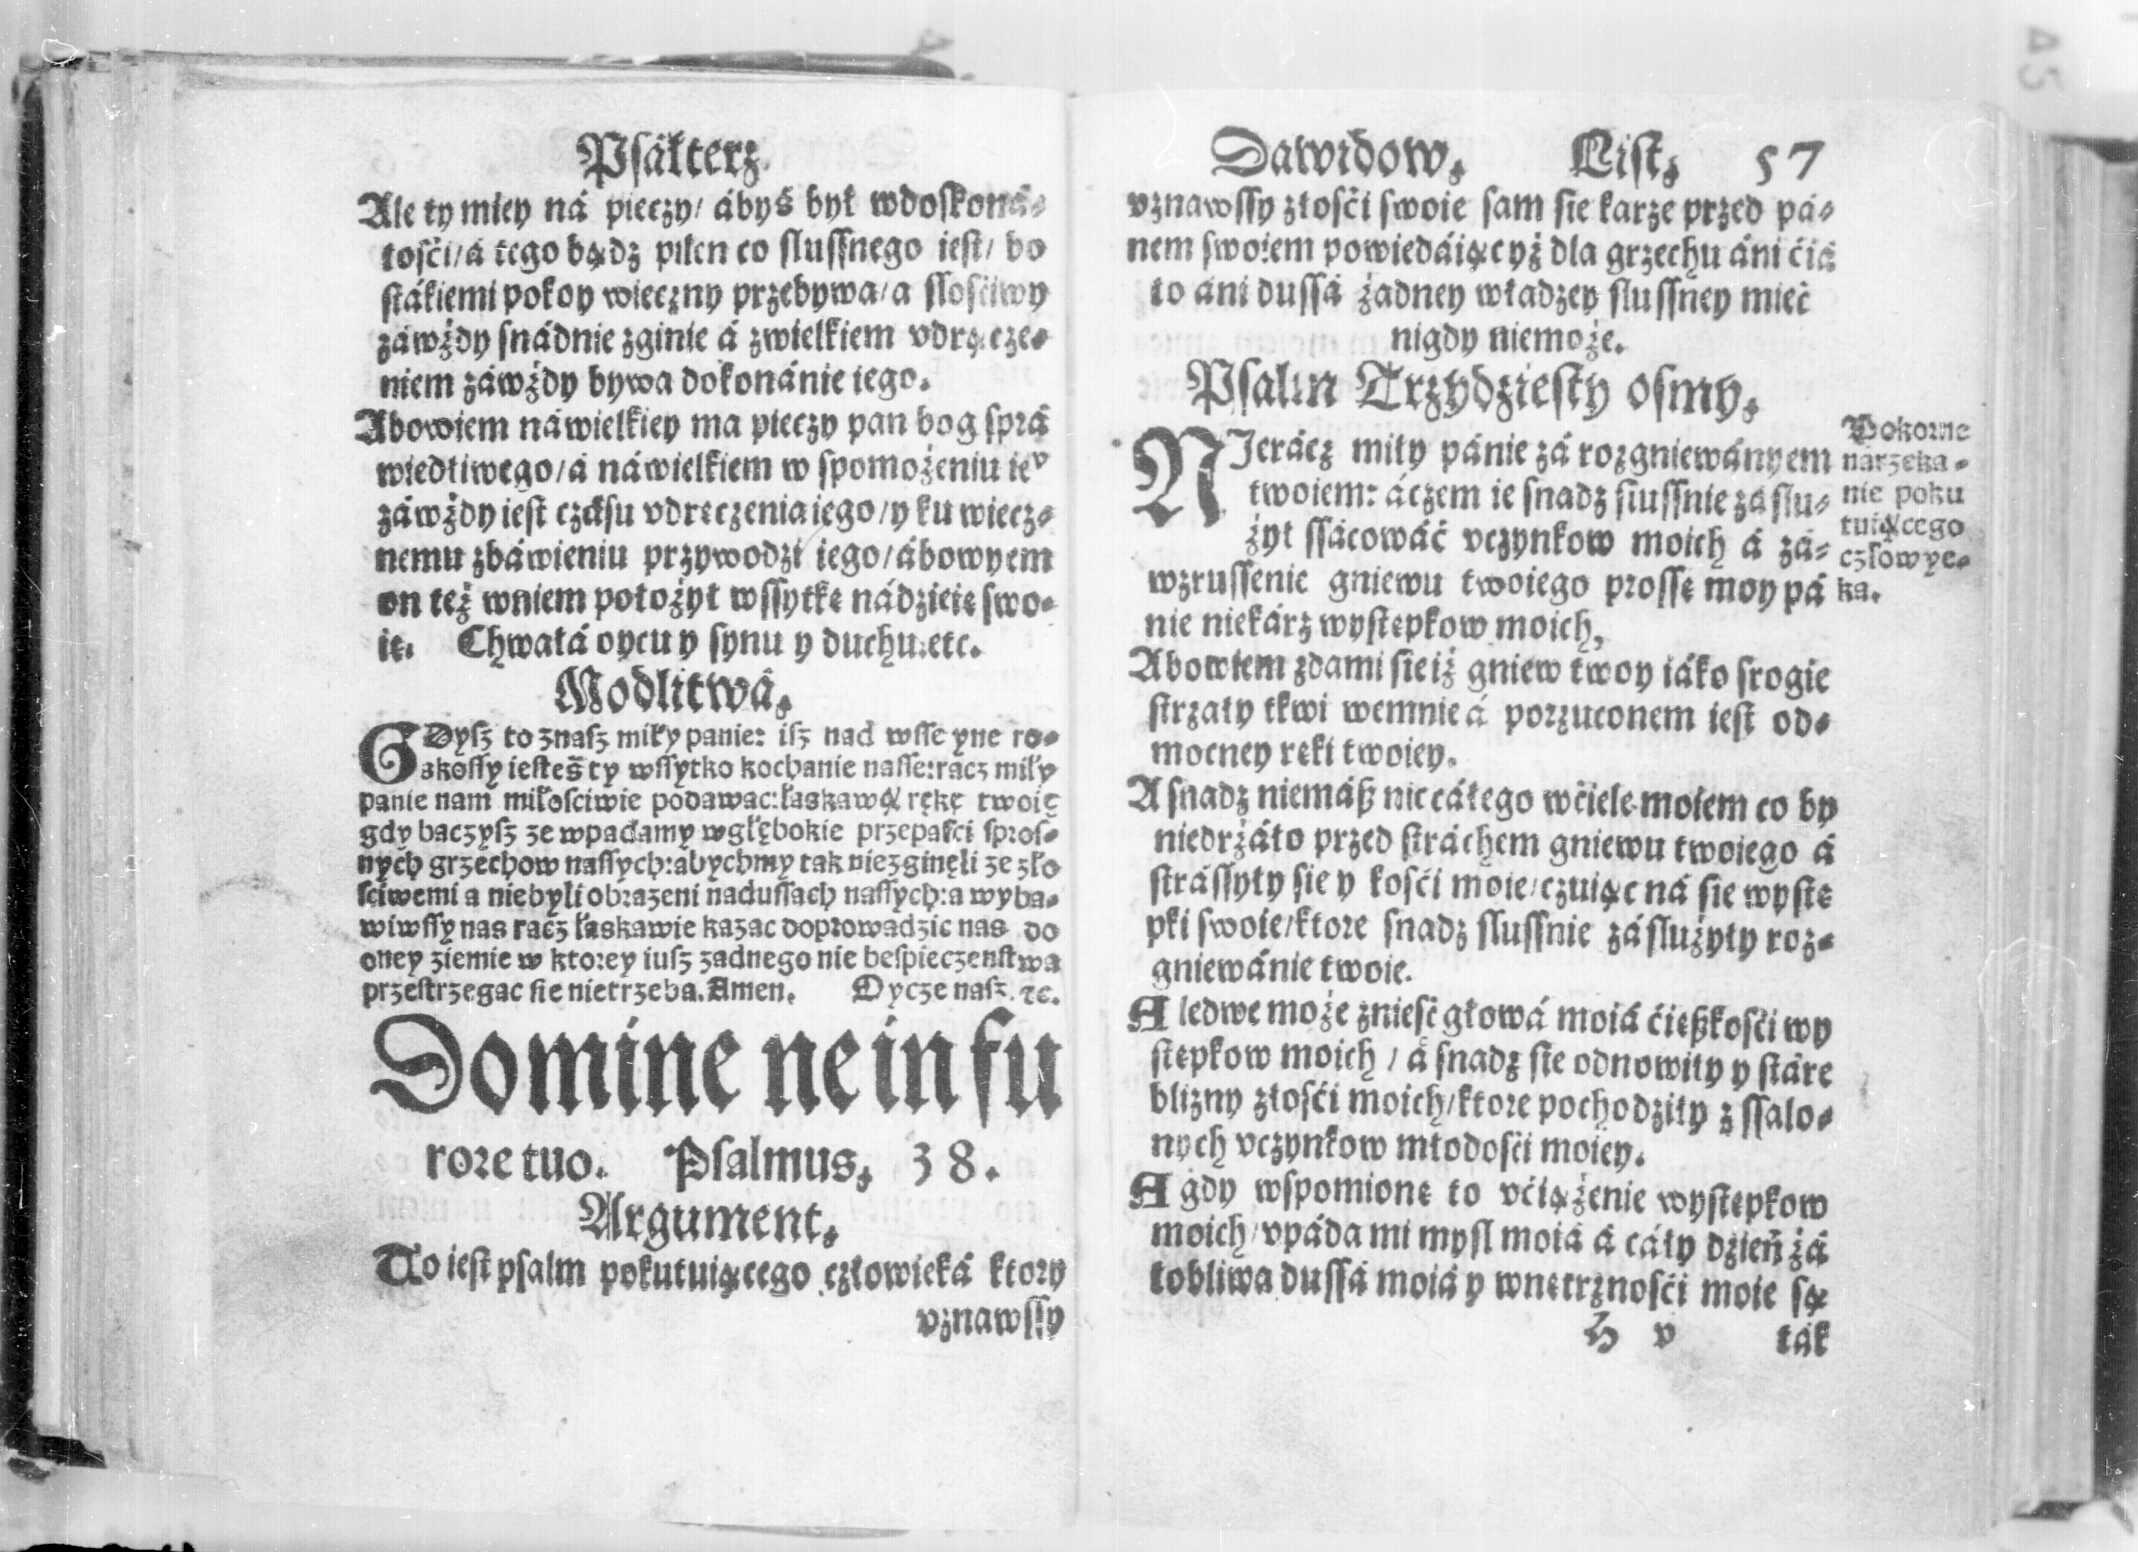 Psałterz.
Ale ty miey ná pieczy/ ábyś był wdoskoná-
łosći/á tego bądz pilen co slussnego iest/ bo
stákiemi pokoy wieczny przebywa/a slosciwy
záwżdy snádnie zginie á zwielkiem vdręcze-
niem záwżdy bywa dokonánie iego.
Abowiem náwielkiey ma pieczy pan bog sprá
wiedliwego/á náwielkiem w spomożeniu ie°
záwżdy iest czásu vdręczenia iego/y ku wiecz-
nemu zbáwieniu przywodzi iego/ábowyem
on też wniem położył wssytkę nádzieię swo-
ię. Chwałá oycu y synu y duchu.etc.
Modlitwá.
GDysz to znasz miły panie: isz nad wsse yne ro-
skossy iesteś ty wssytko kochanie nasse:racz miły
panie nam miłosciwie podawac:łaskawą rękę twoię
gdy baczysz ze wpadamy wgłębokie przepasci spros-
nych grzechow nassych:abychmy tak niezginęli ze zło
sciwemi a niebyli obrazeni nadussach nassych:a wyba-
wiwssy nas racz łaskawie kazac doprowadzic nas do
oney ziemie w ktorey iusz zadnego nie bespieczenstwa
przestrzegac sie nietrzeba.Amen. Oycze nasz. ꝛc.
Domine ne in fu
rore tuo. Psalmus. 38.
Argument.
To iest psalm pokutuiącego człowieká ktory
vznawssy
Dawidow. List. 57
vznawssy złosći swoie sam sie karze przed pá-
nem swoiem powiedáiąc yż dla grzechu áni ćiá
ło áni dussá żadney władzey slussney mieć
nigdy niemoże.
Psalm Trzydziesty osmy.
NIerácz miły pánie zá rozgniewányem
twoiem: áczem ie snadz slussnie zá slu-
żył ssácowáć vczynkow moich á zá-
wzrussenie gniewu twoiego prossę moy pá
nie niekárz wystepkow moich,
Pokorne
narzeka-
nie poku
tuiącego
człowye-
ka.
Abowiem zdami sie iż gniew twoy iáko srogie
strzały tkwi wemnie á porzuconem iest od-
mocney ręki twoiey.
A snadz niemáß nic cáłego wćiele moiem co by
niedrżáło przed stráchem gniewu twoiego á
strássyły sie y kosći moie/czuiąc ná sie wystę
pki swoie/ktore snadz slussnie zásłużyły roz-
gniewánie twoie.
A ledwe może znieść głowá moiá ćięßkosći wy
stepkow moich / á snadz sie odnowiły y stáre
blizny złosći moich/ktore pochodziły z ssalo-
nych vczynkow młodosći moiey.
A gdy wspomionę to vćiążenie wystepkow
moich/vpáda mi mysl moiá á cáły dzień żá
łobliwa dussá moiá y wnętrznosći moie są
H v ták